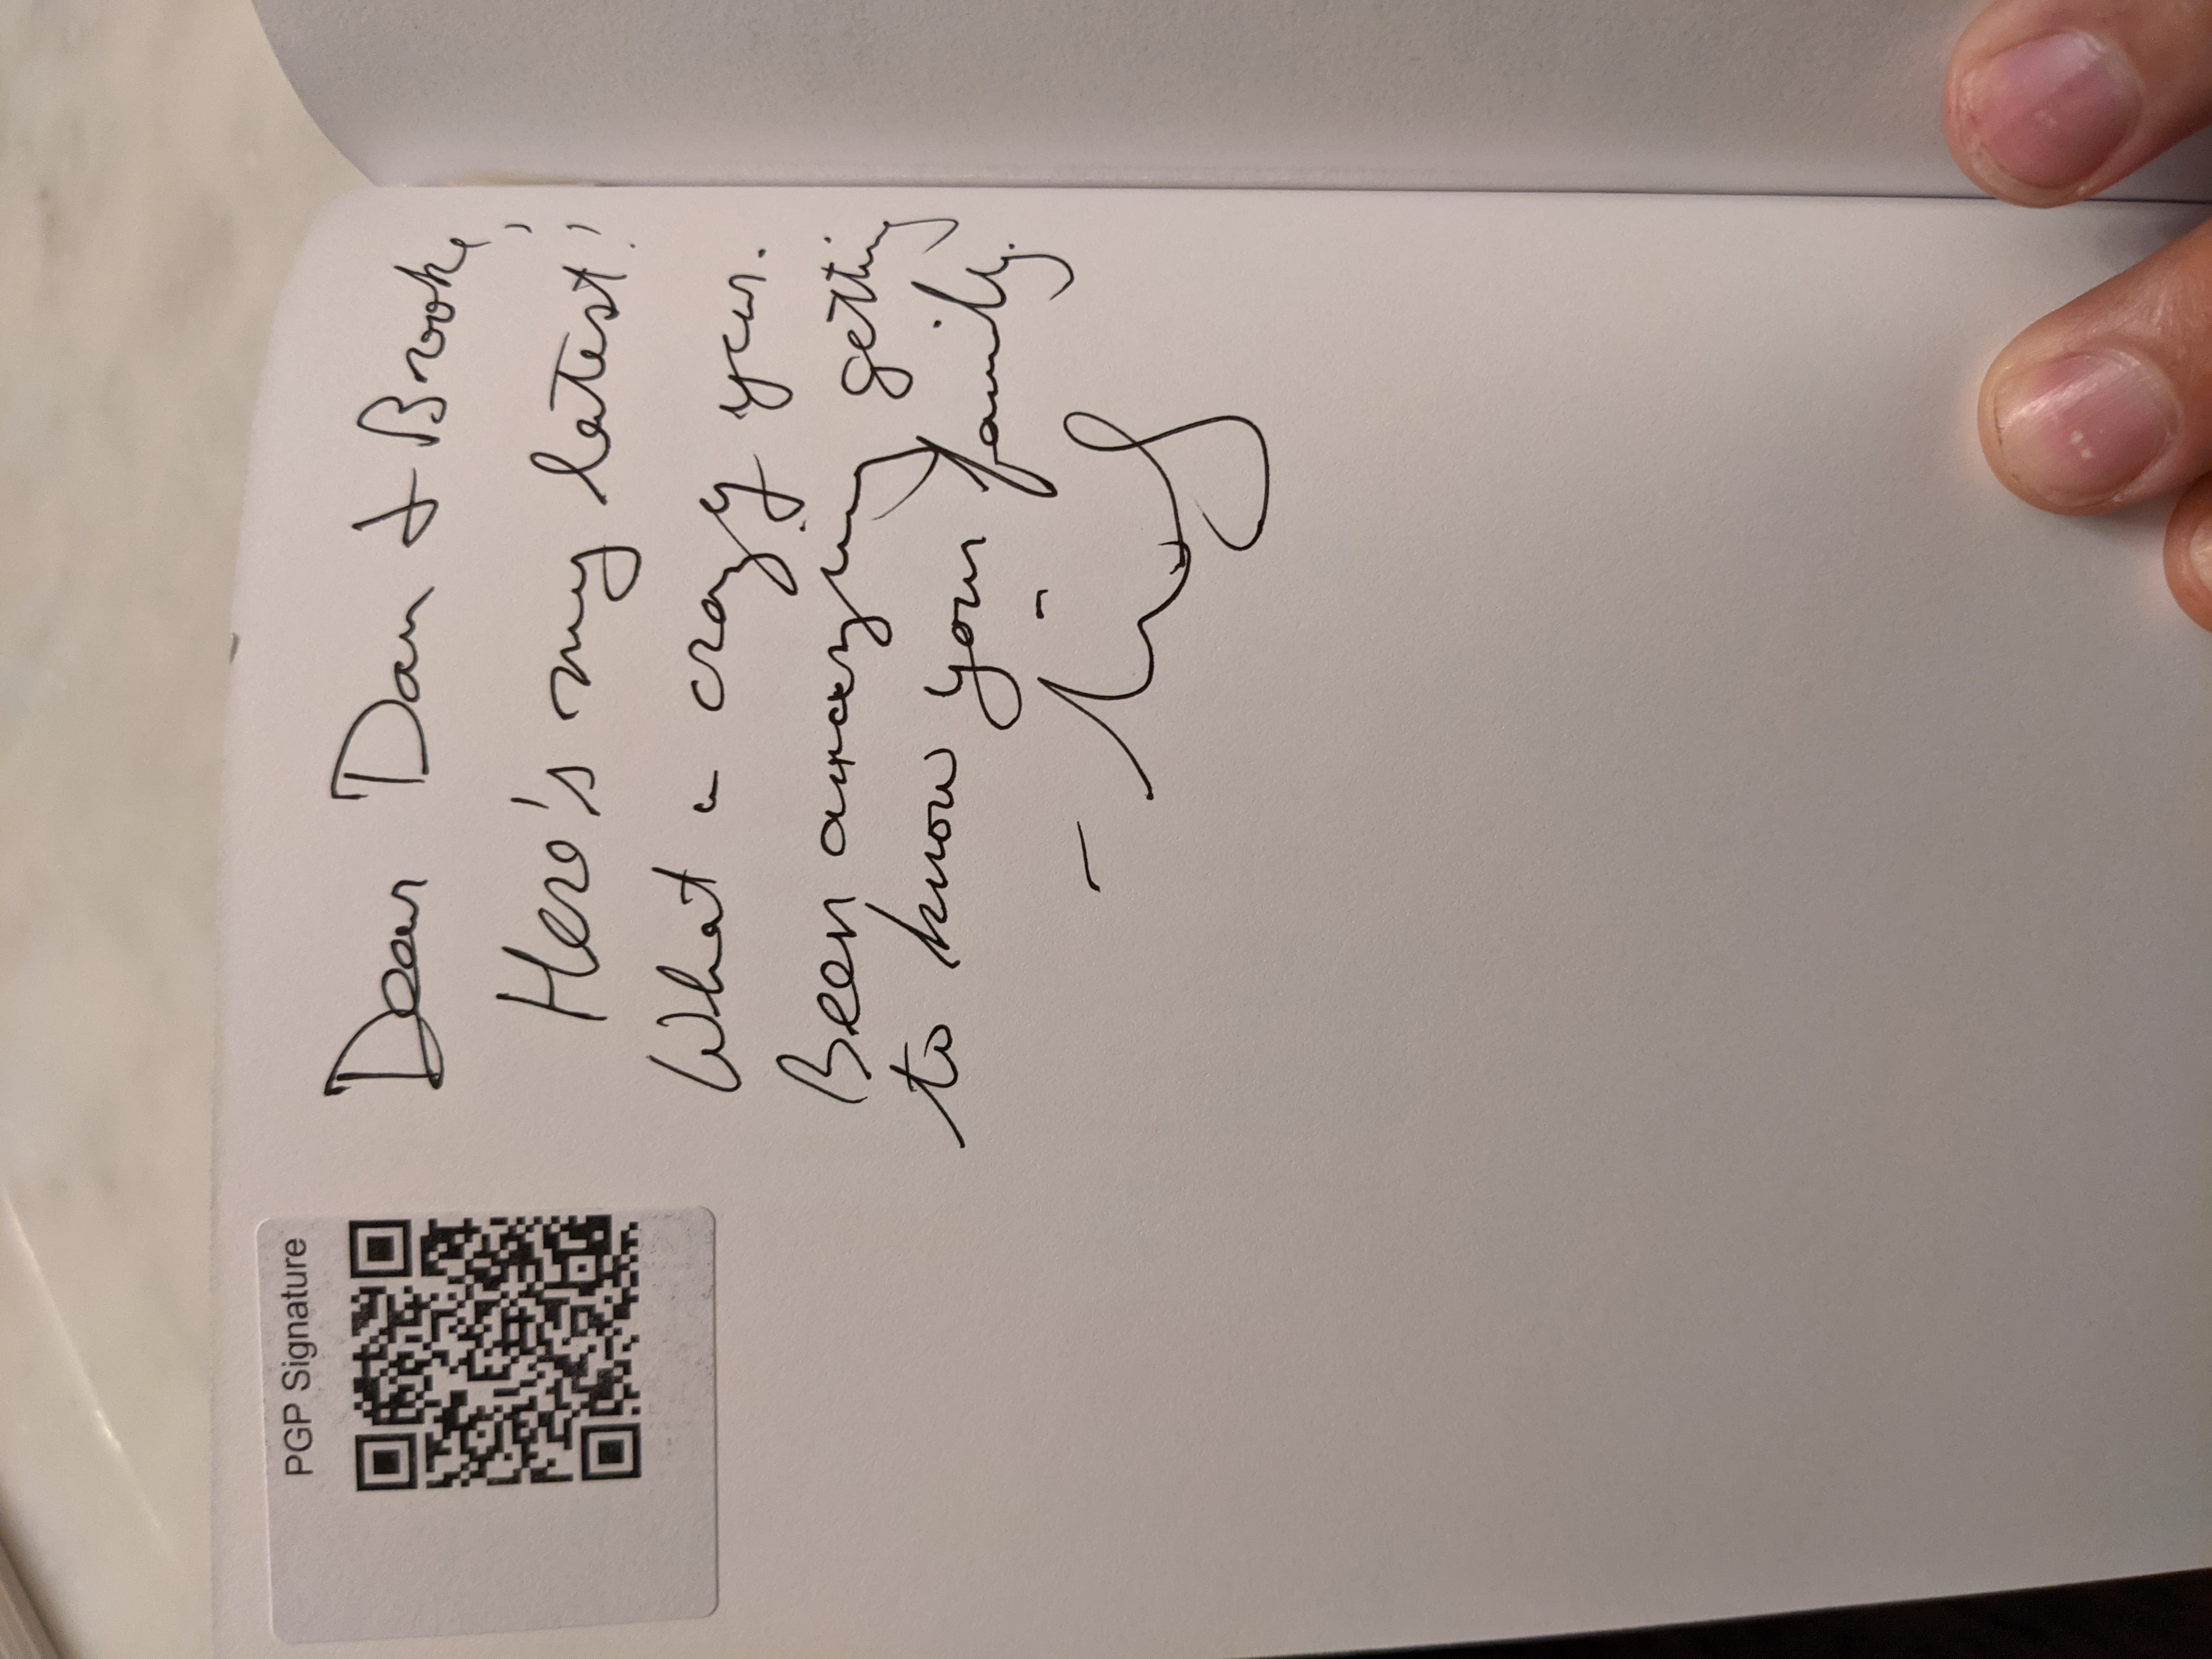 PGP Signature
Dear Dan + Brooke,
Here's my latest!
What a crazy year.
Been amazing getting
to know your family.